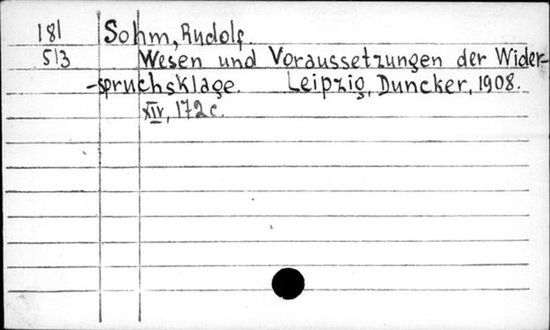 181 Sohm, Rudolf.
513 Wesen und Voraussetzungen der Wider-
-spruchsklage. Leipzig, Duncker, 1908.
XIV, 172 c.